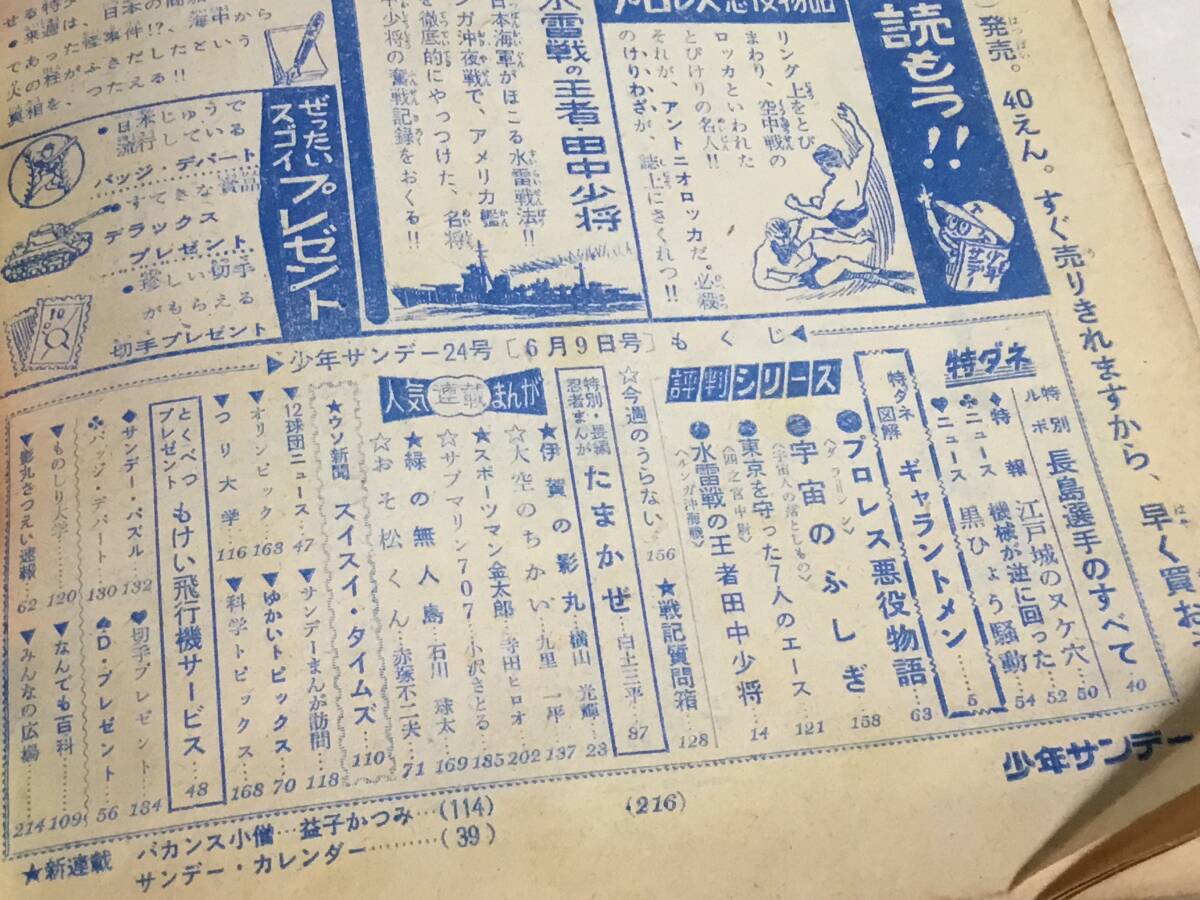 発売。40えん。すぐ売りきれますから、早く買お
読もう!!
少年サンデー
リング上をとび
まわり、空中戦の
ロッカといわれた
とびげりの名人!!
それが、アントニオロッカだ。必殺
のけりわざが、誌上にさくれつ!!
水雷戦の王者・田中少将
日本海軍がほこる水雷戦法!!
ガ沖夜戦で、アメリカ艦
を徹底的にやっつけた、名将
中少将の奮戦記録をおくる!!
ぜったい
スゴイプレゼント
●日本じゅうで
流行している
バッジ・デパート
●すてきな賞品
デラックス
プレゼント
●珍しい切手
がもらえる
切手プレゼント
少年サンデー24号〔6月9日号〕もくじ
特ダネ
特別
ルポ 長島選手のすべて…40
江戸城のヌケ穴…50
◆特報 機械が逆に回った…52
♣ニュース 黒ひょう騒動…54
♥ニュース ギャラントメン…5
特ダネ
図解 プロレス悪役物語…63
評判シリーズ
プロレス悪役物語…63
宇宙のふしぎ…158
〈宇宙人の落としもの〉
東京を守った7人のエース…121
〈四之宮中尉〉
水雷戦の王者田中少将…14
〈ルンガ沖海戦〉
☆今週のうらない…156
★戦記質問箱…128
特別・長編
忍者まんが たまかぜ…白土三平…87
人気連載まんが
★伊賀の影丸…横山光輝…23
☆大空のちかい…九里一平…137
★スポーツマン金太郎…寺田ヒロオ…202
☆サブマリン707…小沢さとる…185
★緑の無人島…石川球太…169
☆おそ松くん…赤塚不二夫…71
★ウソ新聞 スイスイ・タイムズ…110
▼12球団ニュース…47
▼サンデーまんが訪問…118
▼オリンピック…163
▼ゆかいトピックス…70
▼つり大学…116
▼科学トピックス…168
とくべつ
プレゼント もけい飛行機サービス…48
◆サンデー・パズル…132
♥切手プレゼント…134
♣バッジ・デパート…130
♠D・プレゼント…56
▼ものしり大学…120
▼なんでも百科…109
▼影丸さつえい速報…62
▼みんなの広場…214
★新連載 バカンス小僧…益子かつみ…(114)
サンデー・カレンダー………(39)
(216)
少年サンデー